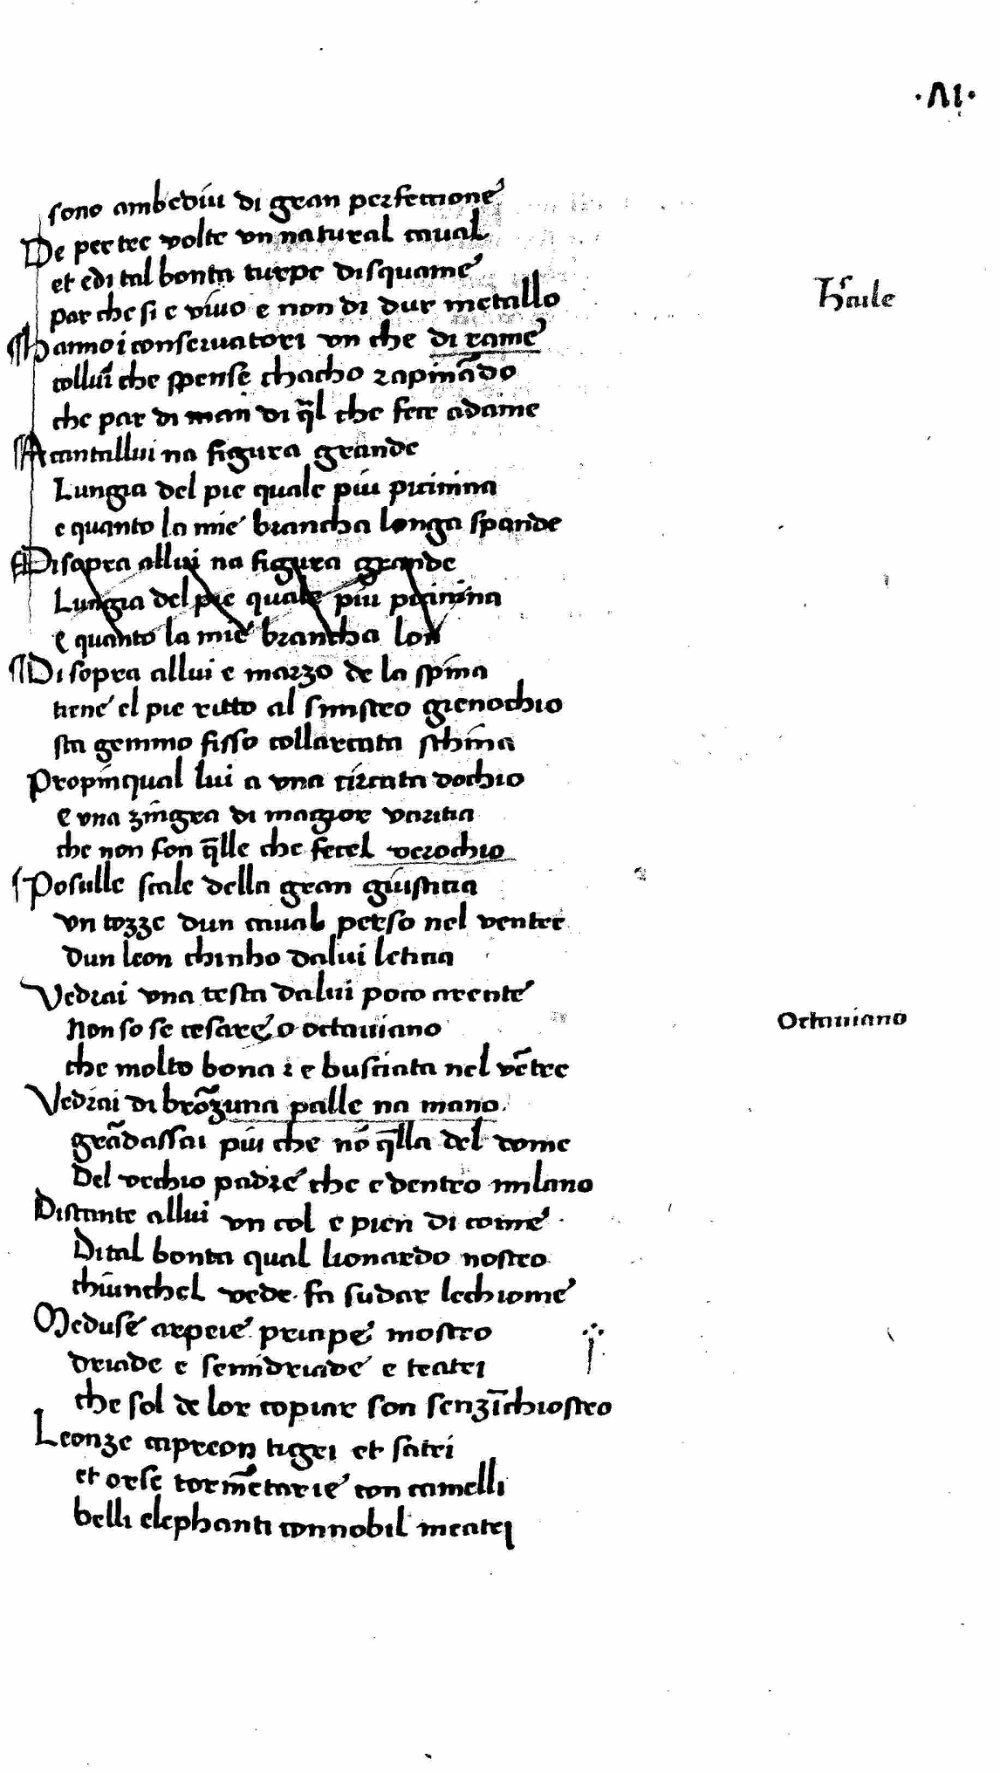 ·VI·
sono ambediu di gran perfectione
De per tre volte un natural caval
et edi tal bonta turpe di squame
par che si e vivo e non di dur metallo
Hercule
Hanno i conservatori un che di rame
collui che spense chacho rapinādo
che par di man di q̄l che fece adame
Acantallui na figura grande
Lungia del pie quale piu picinina
e quanto la mie brancha longa spande
Disopra allui na figura grande
Lungia del pie quale piu picinina
E quanto la mie brancha lon
Disopra allui e marzo de la spina
tiene el pie ritto al sinistro gienochio
sta gemmo fisso collarcata schina
Propinqual lui a una circata dochio
e una zingra di magior varitia
che non fon q̄lle che fecel verochio
Posulle scale della gran giustitia
un tozze dun caval perso nel ventre
dun leon chinho dalui letitia
Vedrai una testa dalui poco arente
Non so se cesare o octaviano
Octauiano
che molto bona i e busciata nel vētre
Vedrai di brōzuna palle na mano
grādassai piu che nō q̄lla del come
Del vechio padre che e dentro milano
Distante allui un col e pien di come
Di tal bonta qual lionardo nostro
chiunchel vede fa sudar lechiome
Meduse arpeie priape mostro
driade e semidriade e teatri
che sol de lor copiar son senzīchiostro
Leonze capreon tigri et satri
et orse tormētarie con camelli
belli elephanti connobil meatri